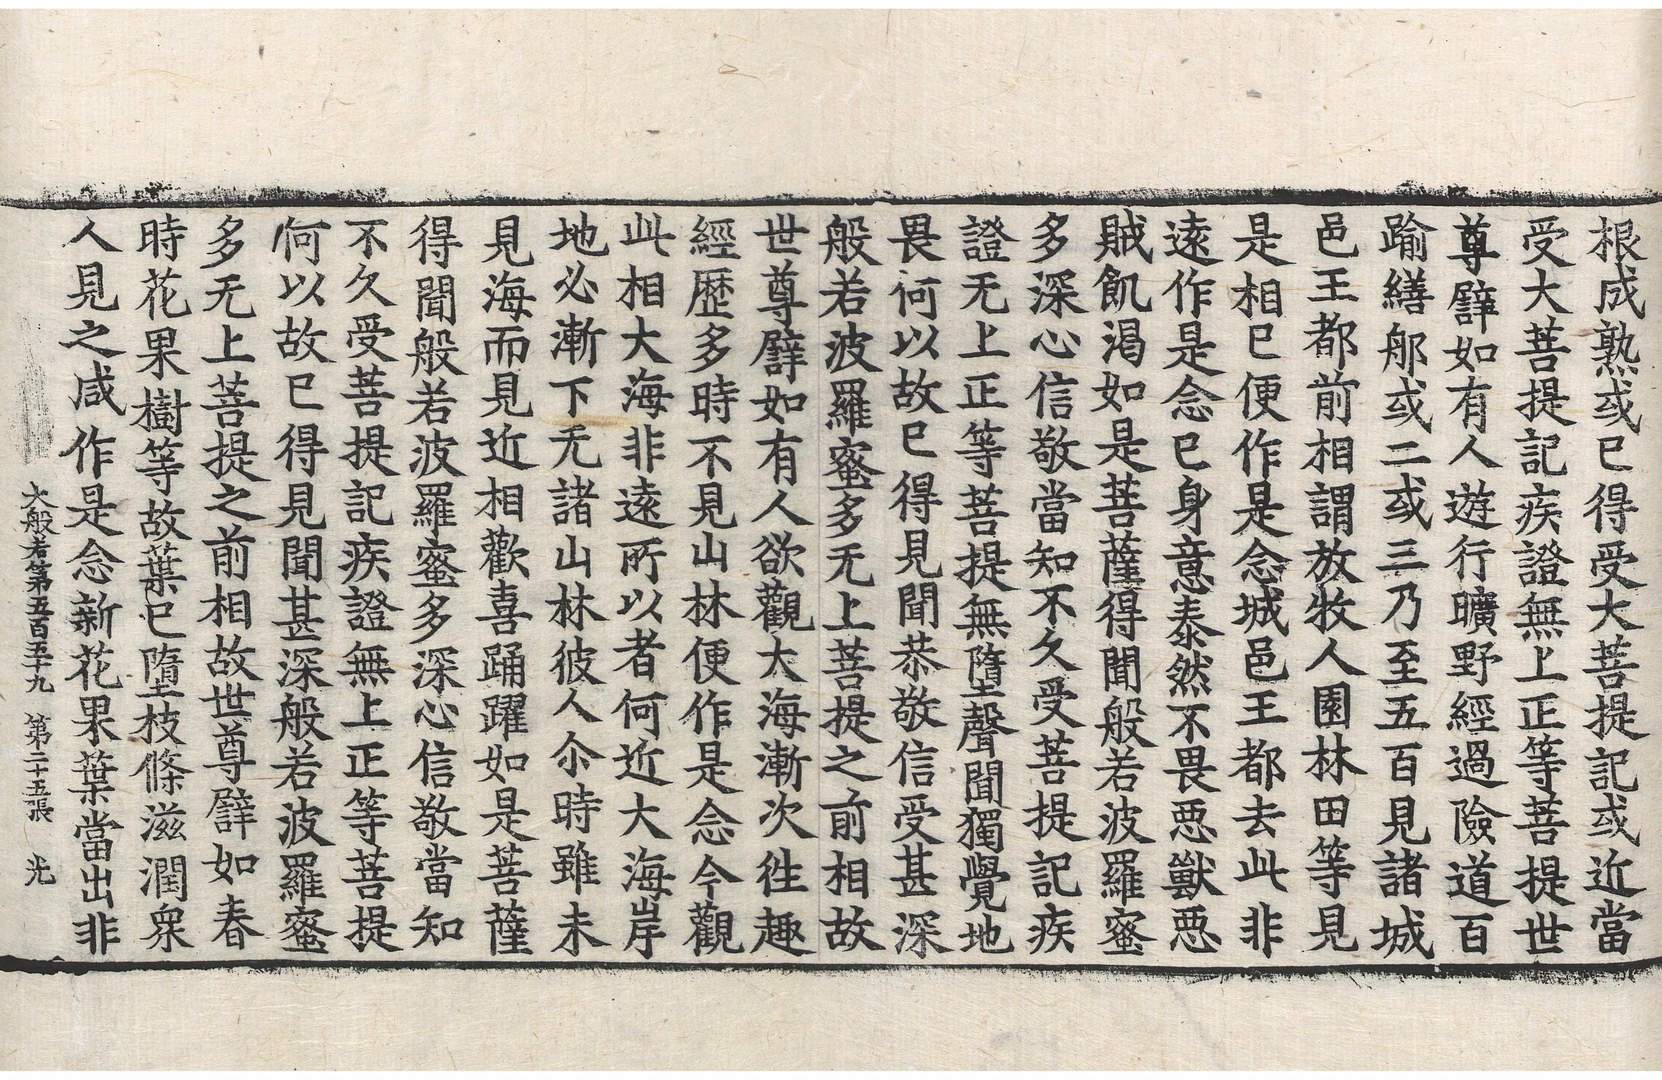 根成熟或已得受大菩提記或近當
受大菩提記疾證無上正等菩提世
尊譬如有人遊行曠野經過險道百
踰繕那或二或三乃至五百見諸城
邑王都前相謂放牧人園林田等見
是相已便作是念城邑王都去此非
遠作是念已身意泰然不畏惡獸惡
賊飢渴如是菩薩得聞般若波羅蜜
多深心信敬當知不久受菩提記疾
證无上正等菩提無墮聲聞獨覺地
畏何以故已得見聞恭敬信受甚深
般若波羅蜜多无上菩提之前相故
世尊譬如有人欲觀大海漸次往趣
經歷多時不見山林便作是念今觀
此相大海非遠所以者何近大海岸
地必漸下无諸山林彼人尒時雖未
見海而見近相歡喜踊躍如是菩薩
得聞般若波羅蜜多深心信敬當知
不久受菩提記疾證無上正等菩提
何以故已得見聞甚深般若波羅蜜
多无上菩提之前相故世尊譬如春
時花果樹等故葉已墮枝條滋潤衆
人見之咸作是念新花果葉當出非
大般若第五百五十九 第二十五張 光